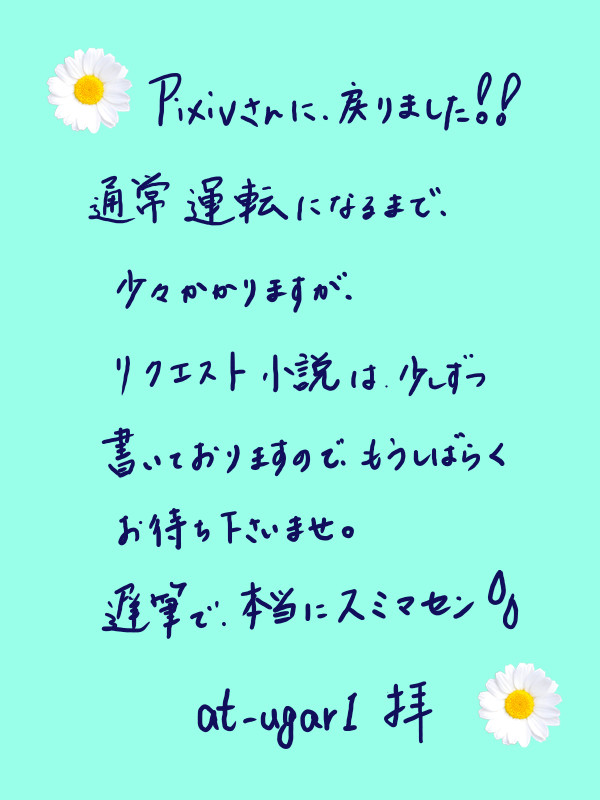 Pixivさんに、戻りました!!
通常運転になるまで、
少々かかりますが、
リクエスト小説は、少しずつ
書いておりますので、もうしばらく
お待ち下さいませ。
遅筆で、本当にスミマセン
at-ugar1 拝